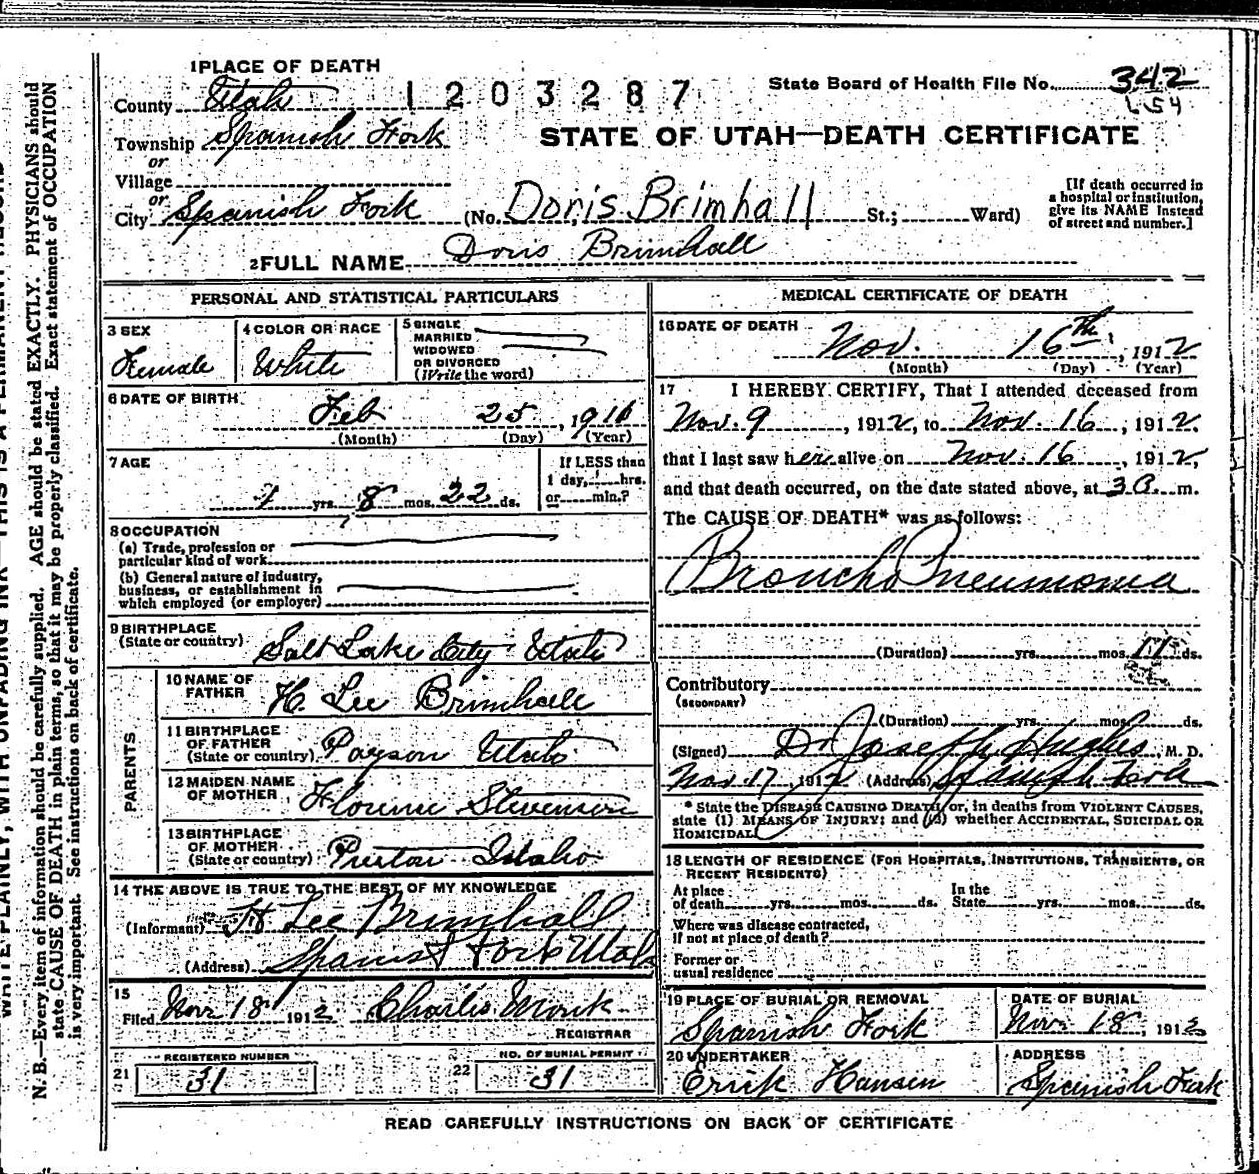 1 PLACE OF DEATH
County Utah
1203287
State Board of Health File No. 342
654
Township Spanish Fork
STATE OF UTAH—DEATH CERTIFICATE
or
Village
or
City Spanish Fork (No. Doris Brimhall St.; Ward)
[If death occurred in a hospital or institution, give its NAME instead of street and number.]
2 FULL NAME Doris Brimhall
PERSONAL AND STATISTICAL PARTICULARS
3 SEX
Female
4 COLOR OR RACE
White
5 SINGLE
MARRIED
WIDOWED
OR DIVORCED
(Write the word)
6 DATE OF BIRTH
Feb 25, 1911
(Month) (Day) (Year)
7 AGE
1 yrs. 8 mos. 22 ds.
If LESS than
1 day, hrs.
or min.?
8 OCCUPATION
(a) Trade, profession or
particular kind of work
(b) General nature of industry,
business, or establishment in
which employed (or employer)
9 BIRTHPLACE
(State or country) Salt Lake City Utah
PARENTS
10 NAME OF
FATHER H. Lee Brimhall
11 BIRTHPLACE
OF FATHER
(State or country) Payson Utah
12 MAIDEN NAME
OF MOTHER Florence Stevenson
13 BIRTHPLACE
OF MOTHER
(State or country) Preston Idaho
14 THE ABOVE IS TRUE TO THE BEST OF MY KNOWLEDGE
(Informant) H Lee Brimhall
(Address) Spanish Fork Utah
15
Filed Nov 18 1912 Charles Monk
REGISTRAR
REGISTERED NUMBER
21 31
NO. OF BURIAL PERMIT
22 31
MEDICAL CERTIFICATE OF DEATH
16 DATE OF DEATH
Nov. 16th, 1912
(Month) (Day) (Year)
17 I HEREBY CERTIFY, That I attended deceased from
Nov. 9, 1912, to Nov. 16, 1912,
that I last saw her alive on Nov. 16, 1912,
and that death occurred, on the date stated above, at 3 a. m.
The CAUSE OF DEATH* was as follows:
Broncho Pneumonia
(Duration) yrs. mos. ds.
Contributory
(SECONDARY)
(Duration) yrs. mos. ds.
(Signed) Dr Joseph Hughes, M. D.
Nov. 17, 1912 (Address) Spanish Fork
* State the DISEASE CAUSING DEATH, or, in deaths from VIOLENT CAUSES,
state (1) MEANS OF INJURY; and (2) whether ACCIDENTAL, SUICIDAL OR
HOMICIDAL.
18 LENGTH OF RESIDENCE (FOR HOSPITALS, INSTITUTIONS, TRANSIENTS, OR
RECENT RESIDENTS)
At place
of death yrs. mos. ds.
In the
State yrs. mos. ds.
Where was disease contracted,
if not at place of death?
Former or
usual residence
19 PLACE OF BURIAL OR REMOVAL
Spanish Fork
DATE OF BURIAL
Nov 18, 1912
20 UNDERTAKER
Errick Hansen
ADDRESS
Spanish Fork
READ CAREFULLY INSTRUCTIONS ON BACK OF CERTIFICATE
WRITE PLAINLY, WITH UNFADING INK—THIS IS A PERMANENT RECORD
N. B.—Every item of information should be carefully supplied. AGE should be stated EXACTLY. PHYSICIANS should
state CAUSE OF DEATH in plain terms, so that it may be properly classified. Exact statement of OCCUPATION
is very important. See instructions on back of certificate.